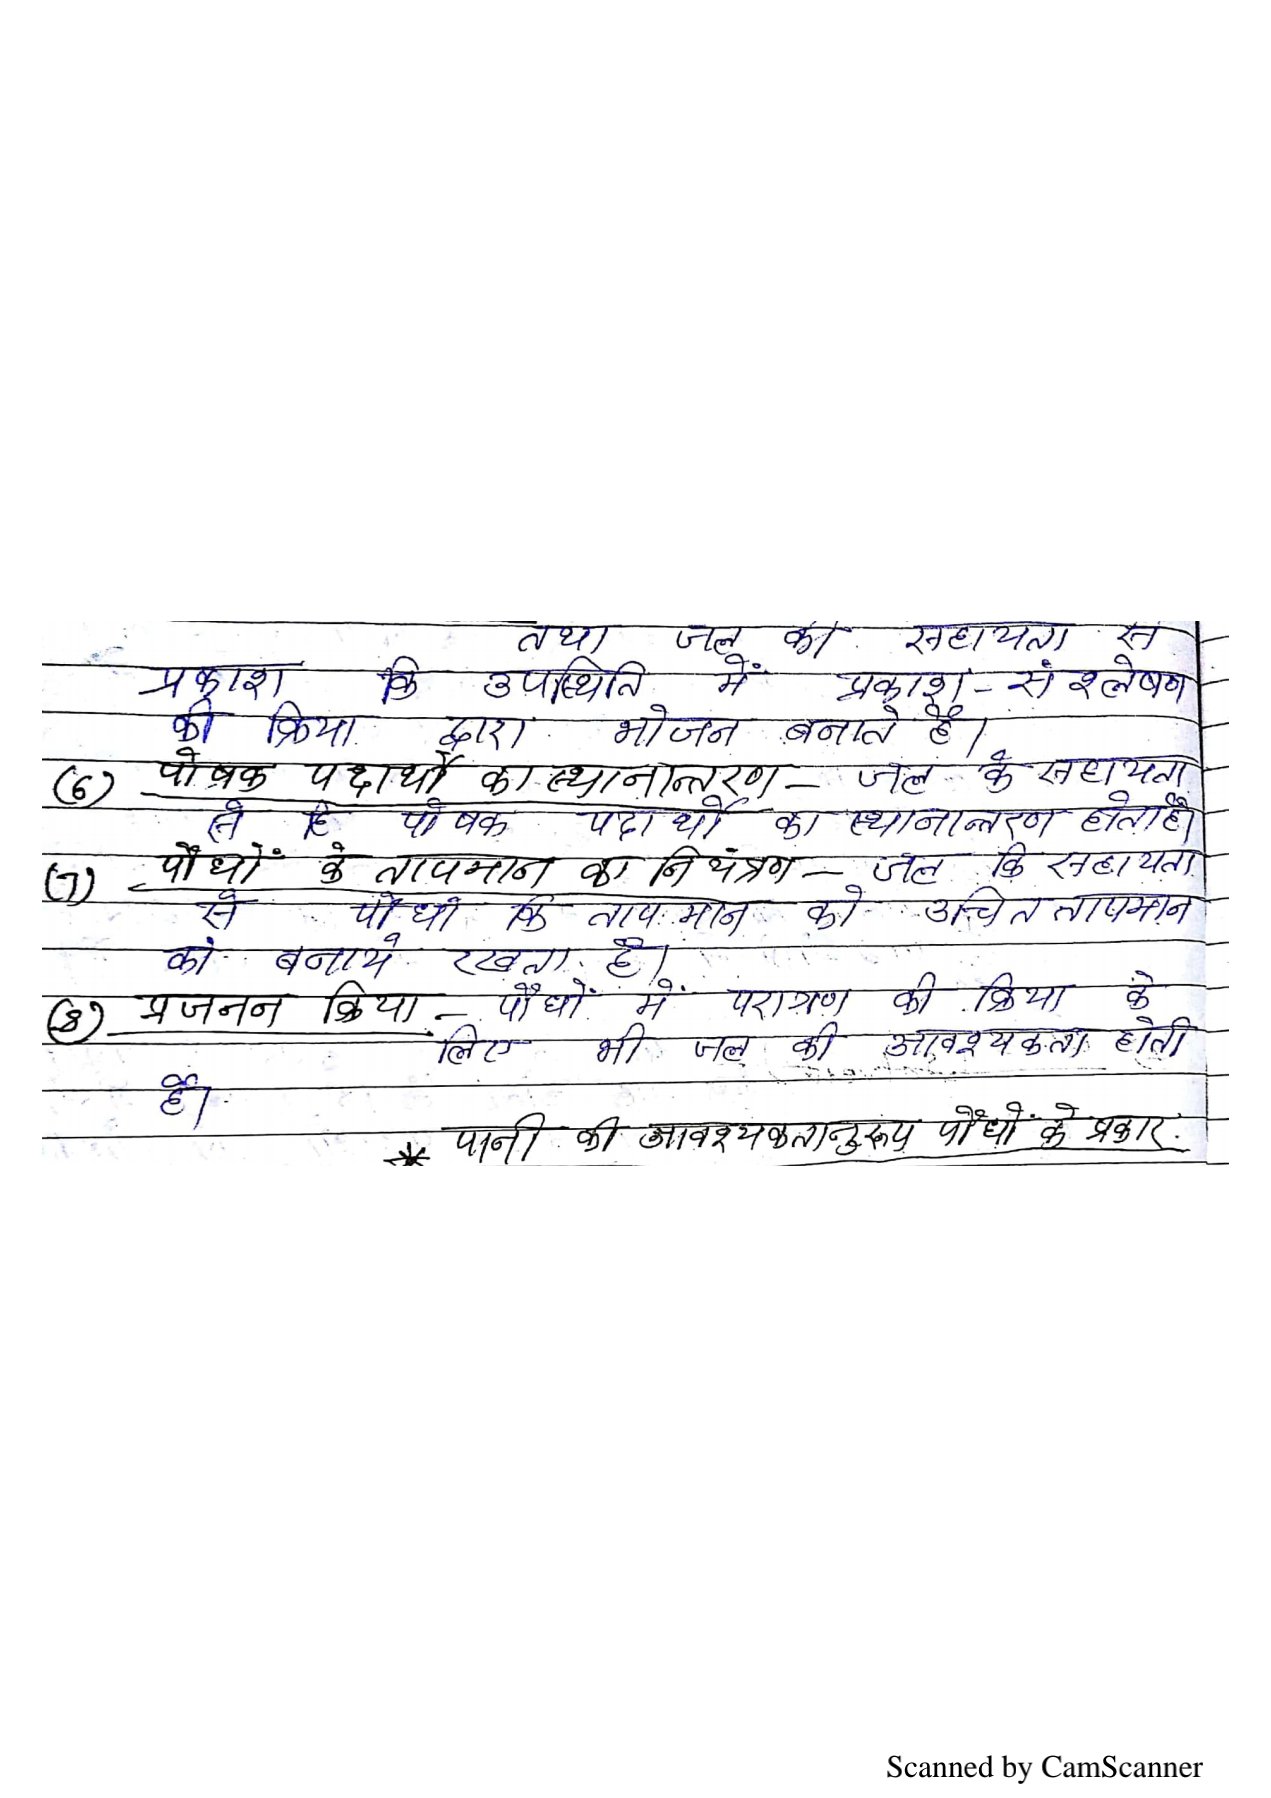 तथा जल की सहायता से
प्रकाश कि उपस्थिति में प्रकाश - संश्लेषण
की क्रिया द्वारा भोजन बनाते है।
(6) पोषक पदार्थो का स्थानान्तरण - जल के सहायता
से हि पोषक पदार्थो का स्थानान्तरण होता है।
(7) पौधों के तापमान का नियंत्रण - जल कि सहायता
से पौधों कि तापमान को उचित तापमान
को बनाये रखता है।
(8) प्रजनन क्रिया - पौधों में परागण की क्रिया के
लिए भी जल की आवश्यकता होती
है।
* पानी की आवश्यकतानुरूप पौधों के प्रकार
Scanned by CamScanner